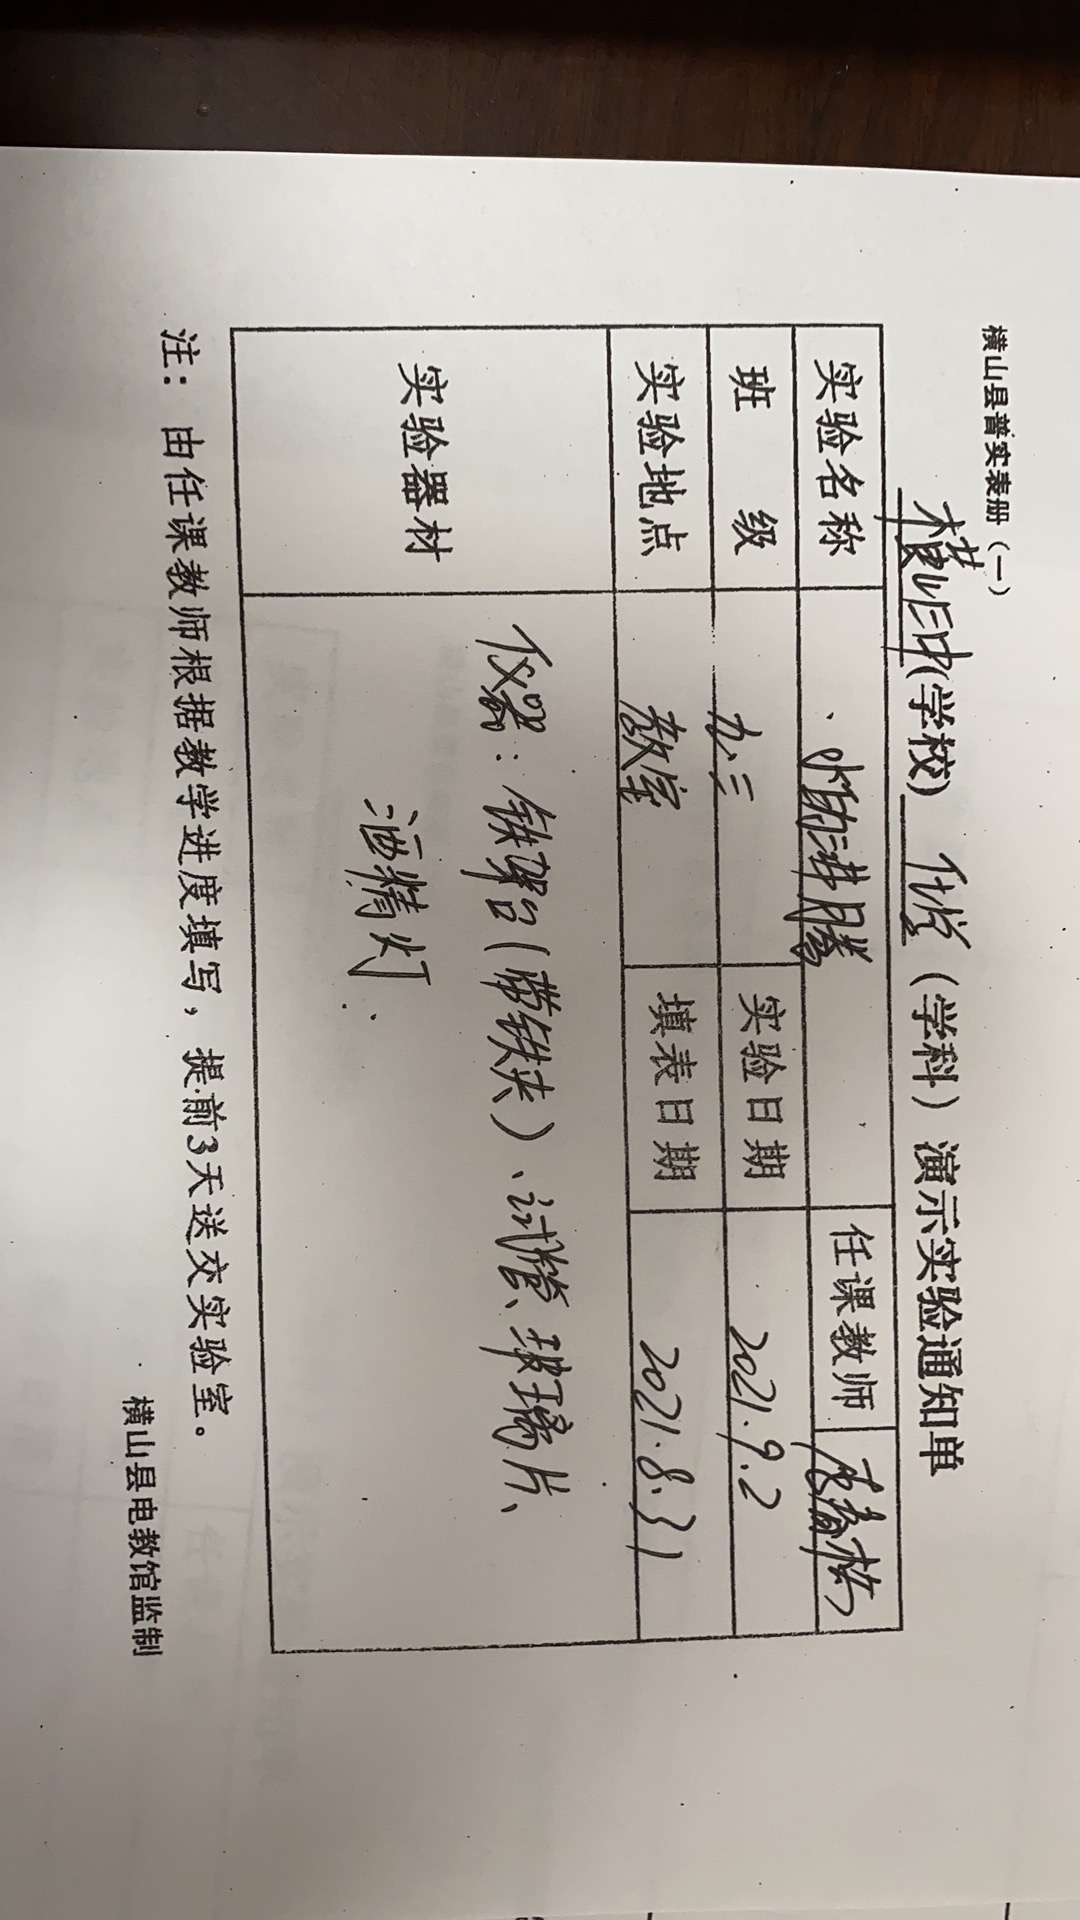 横山县普实表册（一）
横山四中(学校) 化学（学科）演示实验通知单
实验名称 水的沸腾 任课教师
班级 九三 实验日期 2021.9.2
实验地点 教室 填表日期 2021.8.31
实验器材 仪器：铁架台(带铁夹)、试管、玻璃片、
酒精灯
注：由任课教师根据教学进度填写，提前3天送交实验室。
横山县电教馆监制